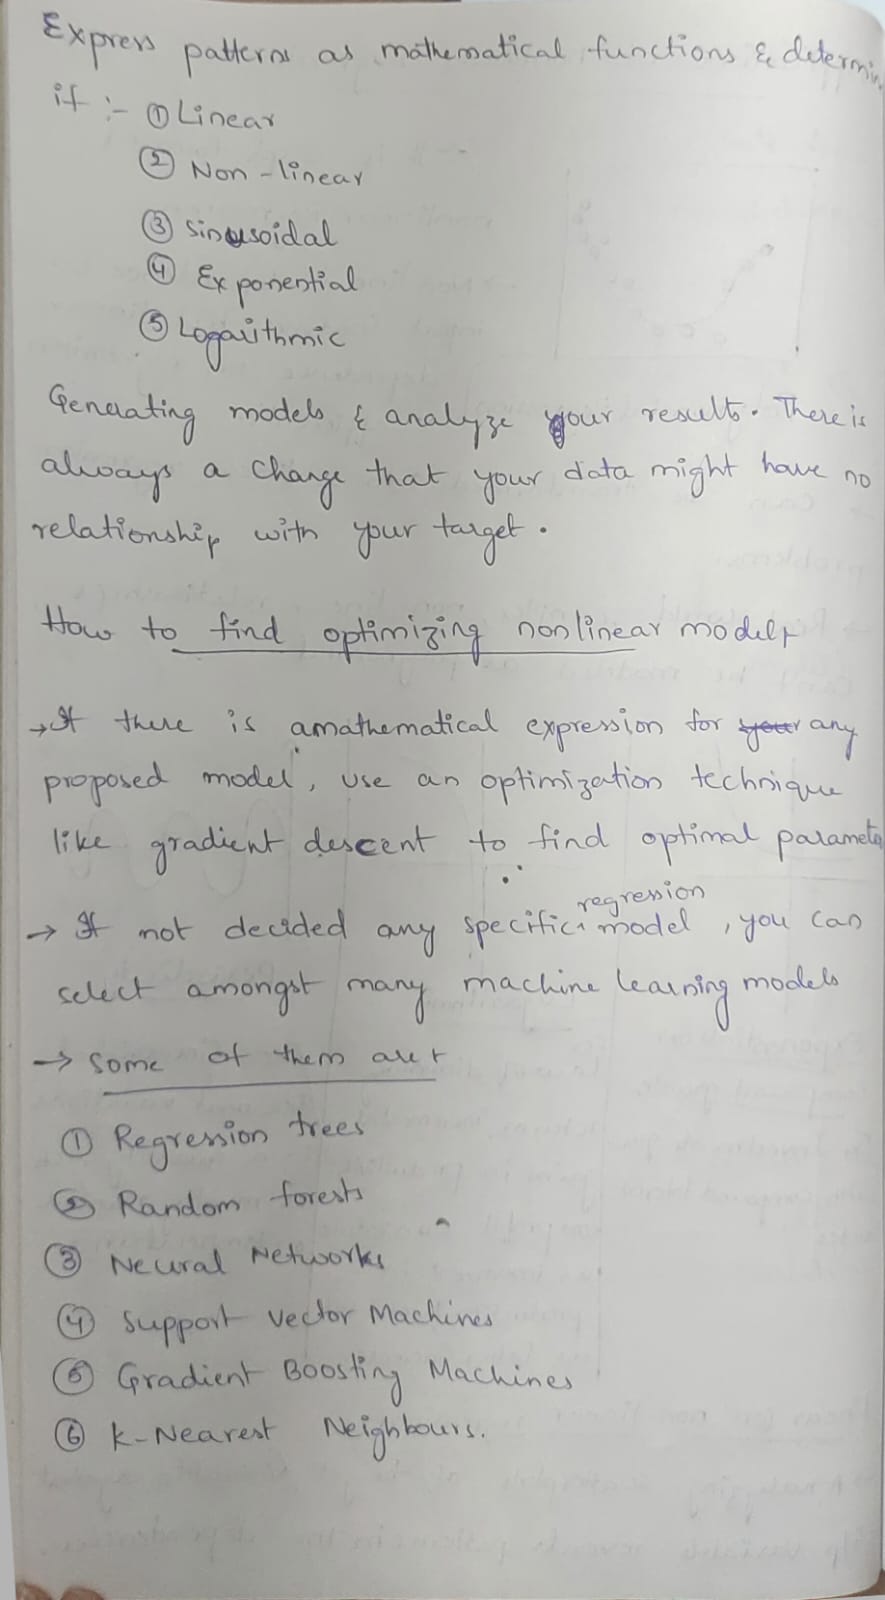 Express patterns as mathematical functions & determin
if :- ① Linear
② Non-linear
③ Sinusoidal
④ Exponential
⑤ Logarithmic
Generating models & analyze your results. There is
always a change that your data might have no
relationship with your target.
How to find optimizing nonlinear model
→ If there is a mathematical expression for your any
proposed model, use an optimization technique
like gradient descent to find optimal paramete
→ If not decided any specific regression model, you can
select amongst many machine learning models
→ some of them are
① Regression trees
② Random forests
③ Neural Networks
④ Support Vector Machines
⑤ Gradient Boosting Machines
⑥ K-Nearest Neighbours.